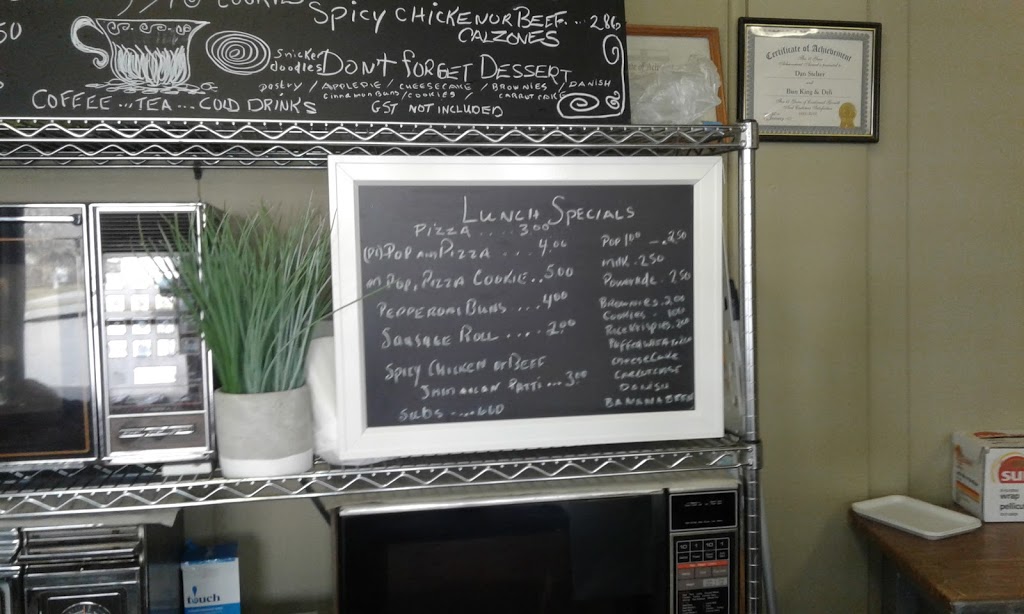 SPICY CHICKEN OR BEEF... 2.86
CALZONES
Snicker
doodles
DON'T FORGET DESSERT
pastry / APPLEPIE / CHEESECAKE / BROWNIES / DANISH
cinnamon buns / COOKIES / CARROT CAKE
COFFEE...TEA...COLD DRINKS
GST NOT INCLUDED
Certificate of Achievement
Dan Stelzer
Bun King & Deli
LUNCH SPECIALS
PIZZA .... 3.00
POP AND PIZZA ... 4.00
POP, PIZZA COOKIE.. 5.00
PEPPERONI BUNS ... 4.00
SAUSAGE ROLL .... 2.00
SPICY CHICKEN OR BEEF
JAMAICAN PATTI ... 3.00
SUBS
POP 1.00 - 2.50
MILK . 2.50
Powerade . 2.50
BROWNIES . 2.00
COOKIES
RICE KRISPIES
CHEESECAKE
CARROT CAKE
DANISH
touch
wrap